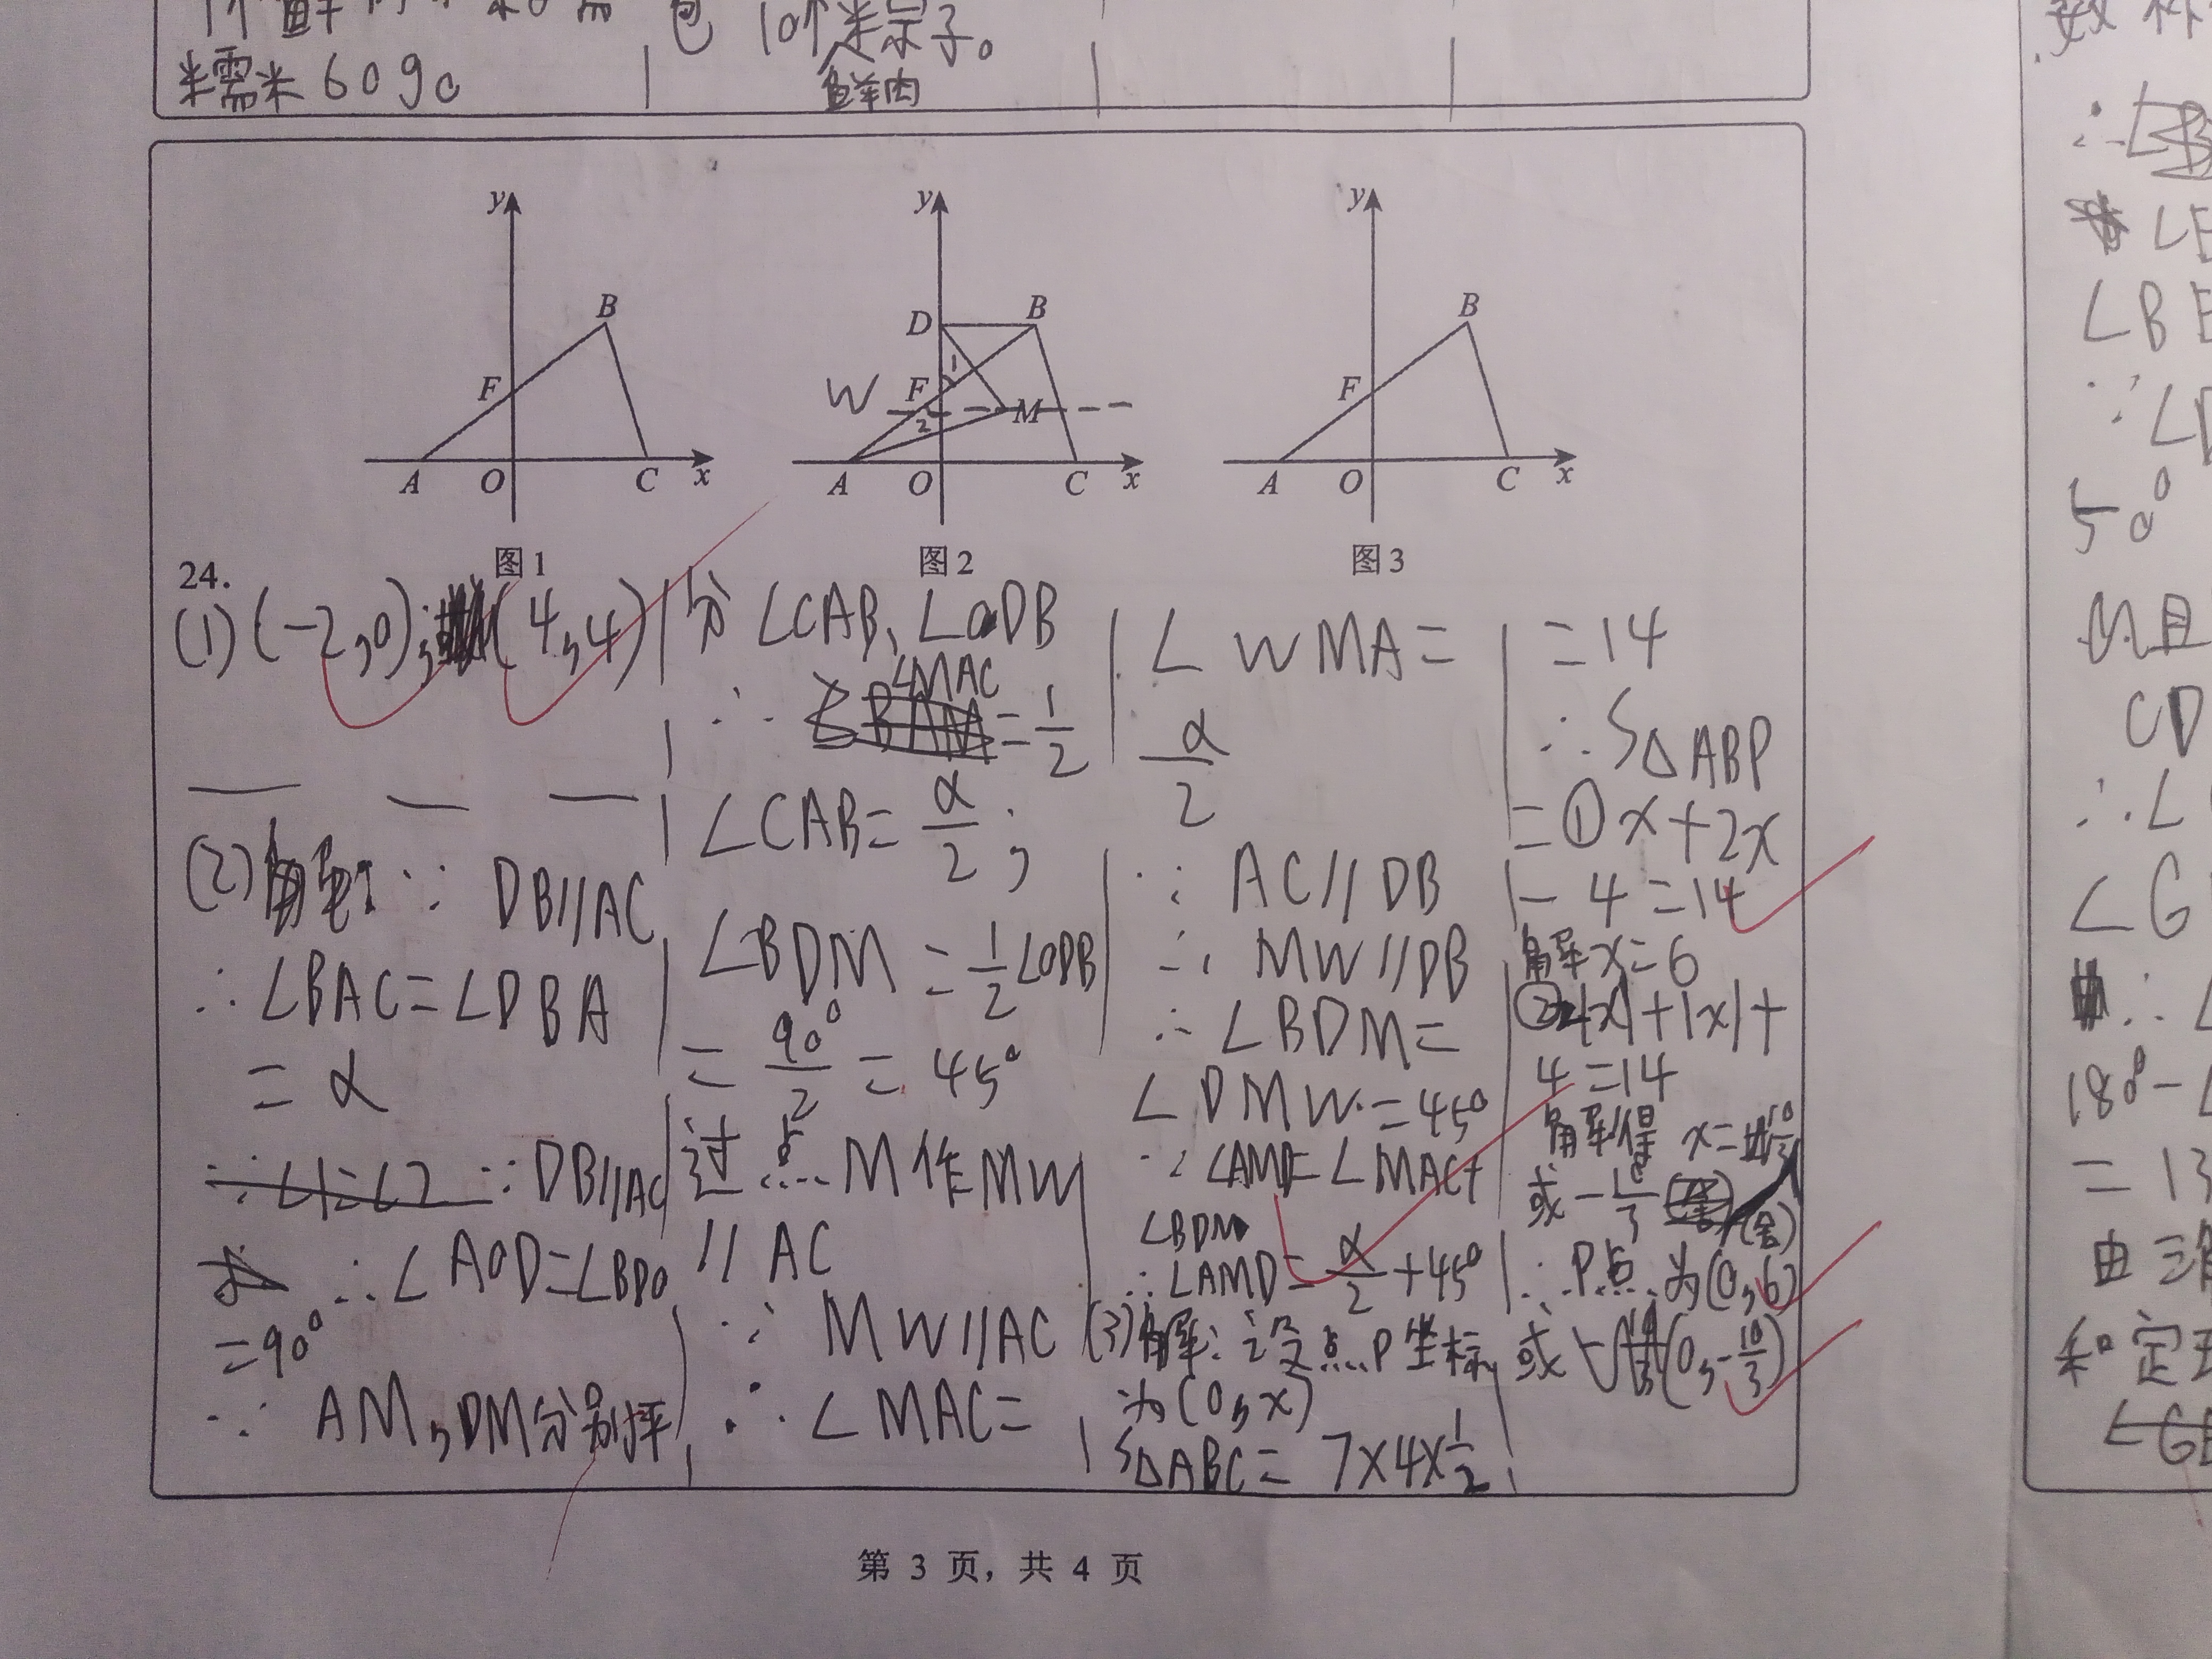 糯米60g。
包10个
粽子。
鲜肉
y
B
F
A
O
C
x
图1
y
D
B
1
W
F
M
2
A
O
C
x
图2
y
B
F
A
O
C
x
图3
24.
(1)(-2,0);(4,4)
(2)∵ DB//AC
∴∠BAC=∠DBA
=α
∵∠1=∠2 ∵DB//AC
∴∠AOD=∠BDO
=90°
∵ AM,DM分别平
分∠CAB、∠ODB
∴∠MAC=1/2
∠CAB=α/2;
∠BDM=1/2∠ODB
=90°/2=45°
过点M作MW
//AC
∵ MW//AC
∴∠MAC=
∠WMA=
α/2
∵ AC//DB
∴ MW//DB
∴∠BDM=
∠DMW=45°
∵∠AMD=∠MAC+
∠BDM
∴∠AMD=α/2+45°
(3)解:设点P坐标
为(0,x)
S△ABC=7×4×1/2
=14
∴S△ABP
=①x+2x
-4=14
解x=6
|x|+|x|+
4=14
解得 x=
或-10/3(舍)
∴P点为(0,6)
或(0,-10/3)
第 3 页，共 4 页
数
∴∠B
∠
∠B
∵∠
50°
M且
CD
∴∠
∠G
∴∠
180°-∠
=13
由三角
和定理
∠G